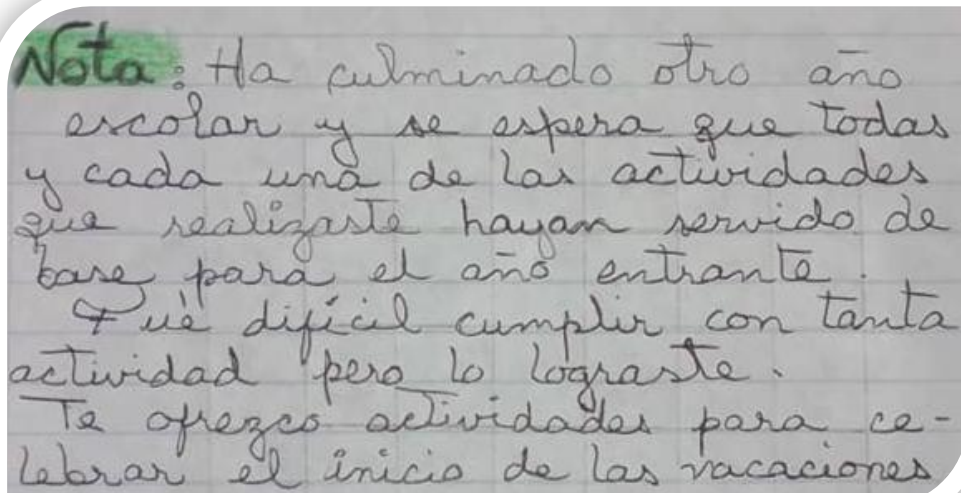 Nota: Ha culminado otro año
escolar y se espera que todas
y cada una de las actividades
que realizaste hayan servido de
base para el año entrante.
Qué difícil cumplir con tanta
actividad pero lo lograste.
Te ofrezco actividades para ce-
lebrar el inicio de las vacaciones